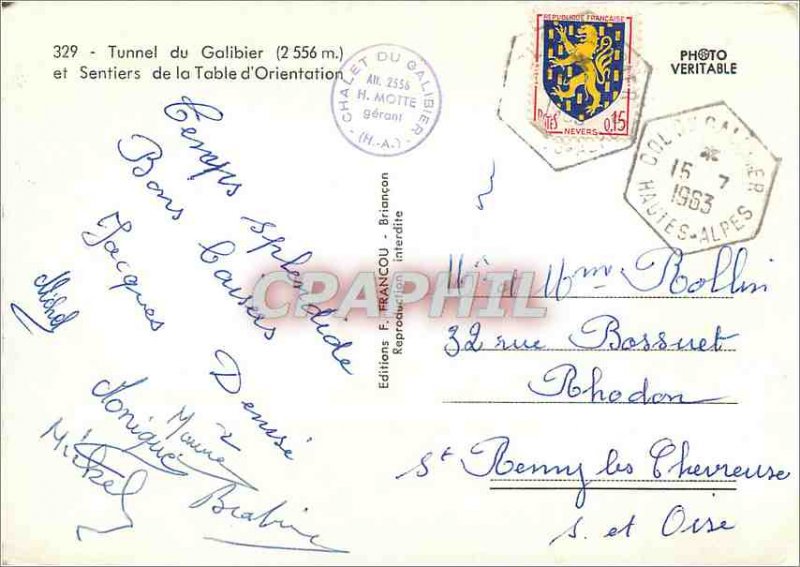 329 - Tunnel du Galibier (2 556 m.)
et Sentiers de la Table d'Orientation
CHALET DU GALIBIER
Alt. 2556
H. MOTTE
gérant
(H.-A.)
REPUBLIQUE FRANÇAISE
POSTES
0,15
NEVERS
PHOTO
VERITABLE
COL DU GALIBIER
15 7
1963
HAUTES-ALPES
Temps splendide
Bons baisers
Jacques Denise
Michel
Monique
Michel
Editions F. FRANCOU - Briançon
Reproduction interdite
CPAPHIL
Mr et Mme Rollin
32 rue Bossuet
Rhodon
St Remy les Chevreuse
S. et Oise